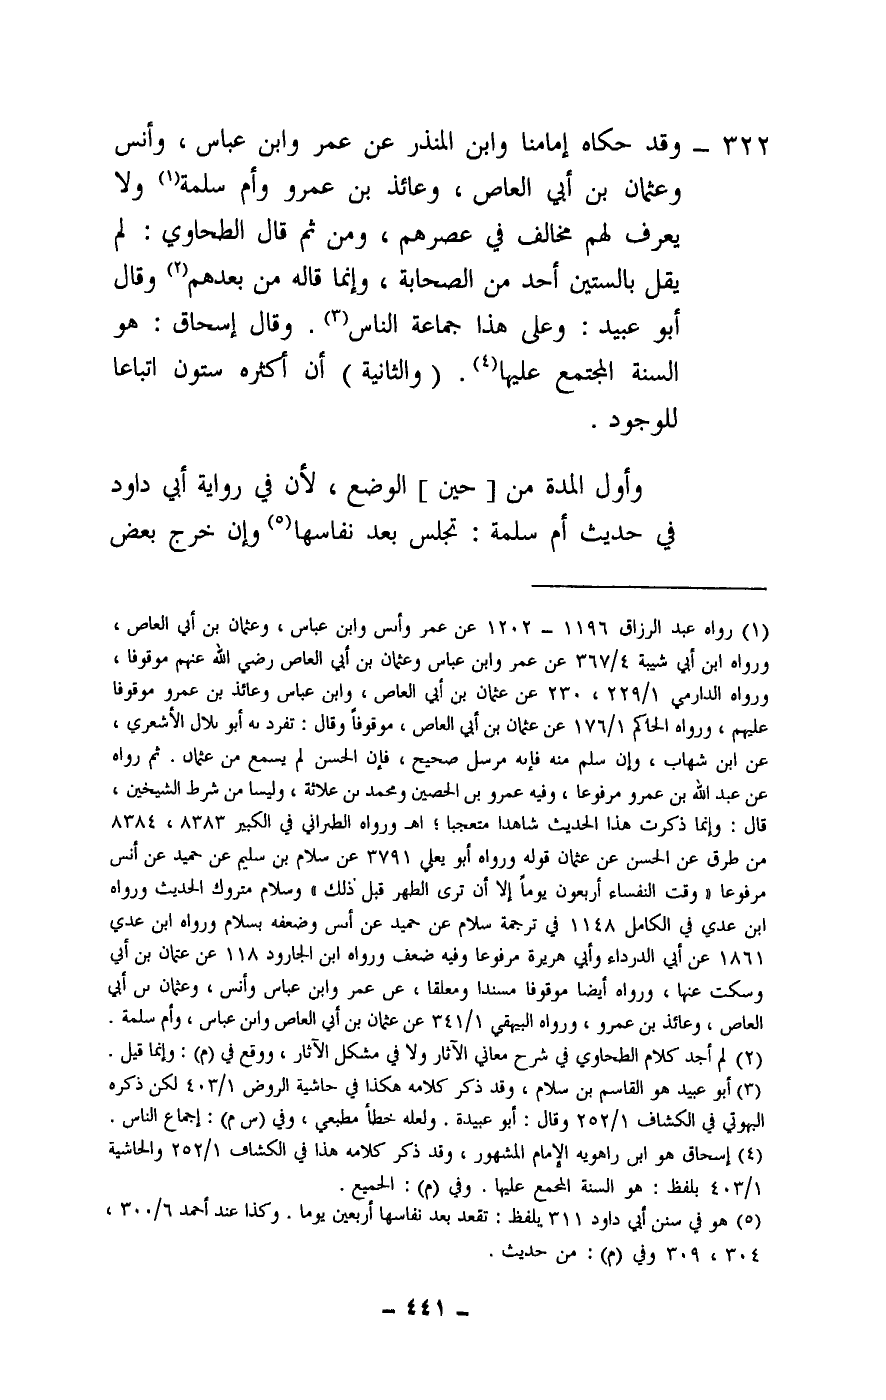 ٣٢٢ ــ وقد حكاه إمامنا وابن المنذر عن عمر وابن عباس ، وأنس
وعثمان بن أبي العاص ، وعائذ بن عمرو وأم سلمة(١) ولا
يعرف لهم مخالف في عصرهم ، ومن ثم قال الطحاوي : لم
يقل بالستين أحد من الصحابة ، وإنما قاله من بعدهم(٢) وقال
أبو عبيد : وعلى هذا جماعة الناس(٣) . وقال إسحاق : هو
السنة المجتمع عليها(٤) . ( والثانية ) أن أكثره ستون اتباعا
للوجود .
وأول المدة من [ حين ] الوضع ، لأن في رواية أبي داود
في حديث أم سلمة : تجلس بعد نفاسها(٥) وإن خرج بعض
(١) رواه عبد الرزاق ١١٩٦ ــ ١٢٠٢ عن عمر وأنس وابن عباس ، وعثمان بن أبي العاص ،
ورواه ابن أبي شيبة ٣٦٧/٤ عن عمر وابن عباس وعثمان بن أبي العاص رضي الله عنهم موقوفا ،
ورواه الدارمي ٢٢٩/١ ، ٢٣٠ عن عثمان بن أبي العاص ، وابن عباس وعائذ بن عمرو موقوفا
عليهم ، ورواه الحاكم ١٧٦/١ عن عثمان بن أبي العاص ، موقوفاً وقال : تفرد به أبو بلال الأشعري ،
عن ابن شهاب ، وإن سلم منه فإنه مرسل صحيح ، فإن الحسن لم يسمع من عثمان . ثم رواه
عن عبد الله بن عمرو مرفوعا ، وفيه عمرو بن الحصين ومحمد بن علاثة ، وليسا من شرط الشيخين ،
قال : وإنما ذكرت هذا الحديث شاهدا متعجبا ؛ اهـ ورواه الطبراني في الكبير ٨٣٨٣ ، ٨٣٨٤
من طرق عن الحسن عن عثمان قوله ورواه أبو يعلي ٣٧٩١ عن سلام بن سليم عن حميد عن أنس
مرفوعا « وقت النفساء أربعون يوماً إلا أن ترى الطهر قبل ذلك » وسلام متروك الحديث ورواه
ابن عدي في الكامل ١١٤٨ في ترجمة سلام عن حميد عن أنس وضعفه بسلام ورواه ابن عدي
١٨٦١ عن أبي الدرداء وأبي هريرة مرفوعا وفيه ضعف ورواه ابن الجارود ١١٨ عن عثمان بن أبي
وسكت عنها ، ورواه أيضا موقوفا مسندا ومعلقا ، عن عمر وابن عباس وأنس ، وعثمان بن أبي
العاص ، وعائذ بن عمرو ، ورواه البيهقي ٣٤١/١ عن عثمان بن أبي العاص وابن عباس ، وأم سلمة .
(٢) لم أجد كلام الطحاوي في شرح معاني الآثار ولا في مشكل الآثار ، ووقع في (م) : وإنما قيل .
(٣) أبو عبيد هو القاسم بن سلام ، وقد ذكر كلامه هكذا في حاشية الروض ٤٠٣/١ لكن ذكره
البهوتي في الكشاف ٢٥٢/١ وقال : أبو عبيدة . ولعله خطأ مطبعي ، وفي (س م) : إجماع الناس .
(٤) إسحاق هو ابن راهويه الإمام المشهور ، وقد ذكر كلامه هذا في الكشاف ٢٥٢/١ والحاشية
٤٠٣/١ بلفظ : هو السنة المجمع عليها . وفي (م) : الجميع .
(٥) هو في سنن أبي داود ٣١١ بلفظ : تقعد بعد نفاسها أربعين يوما . وكذا عند أحمد ٣٠٠/٦ ،
٣٠٤ ، ٣٠٩ وفي (م) : من حديث .
ــ ٤٤١ ــ